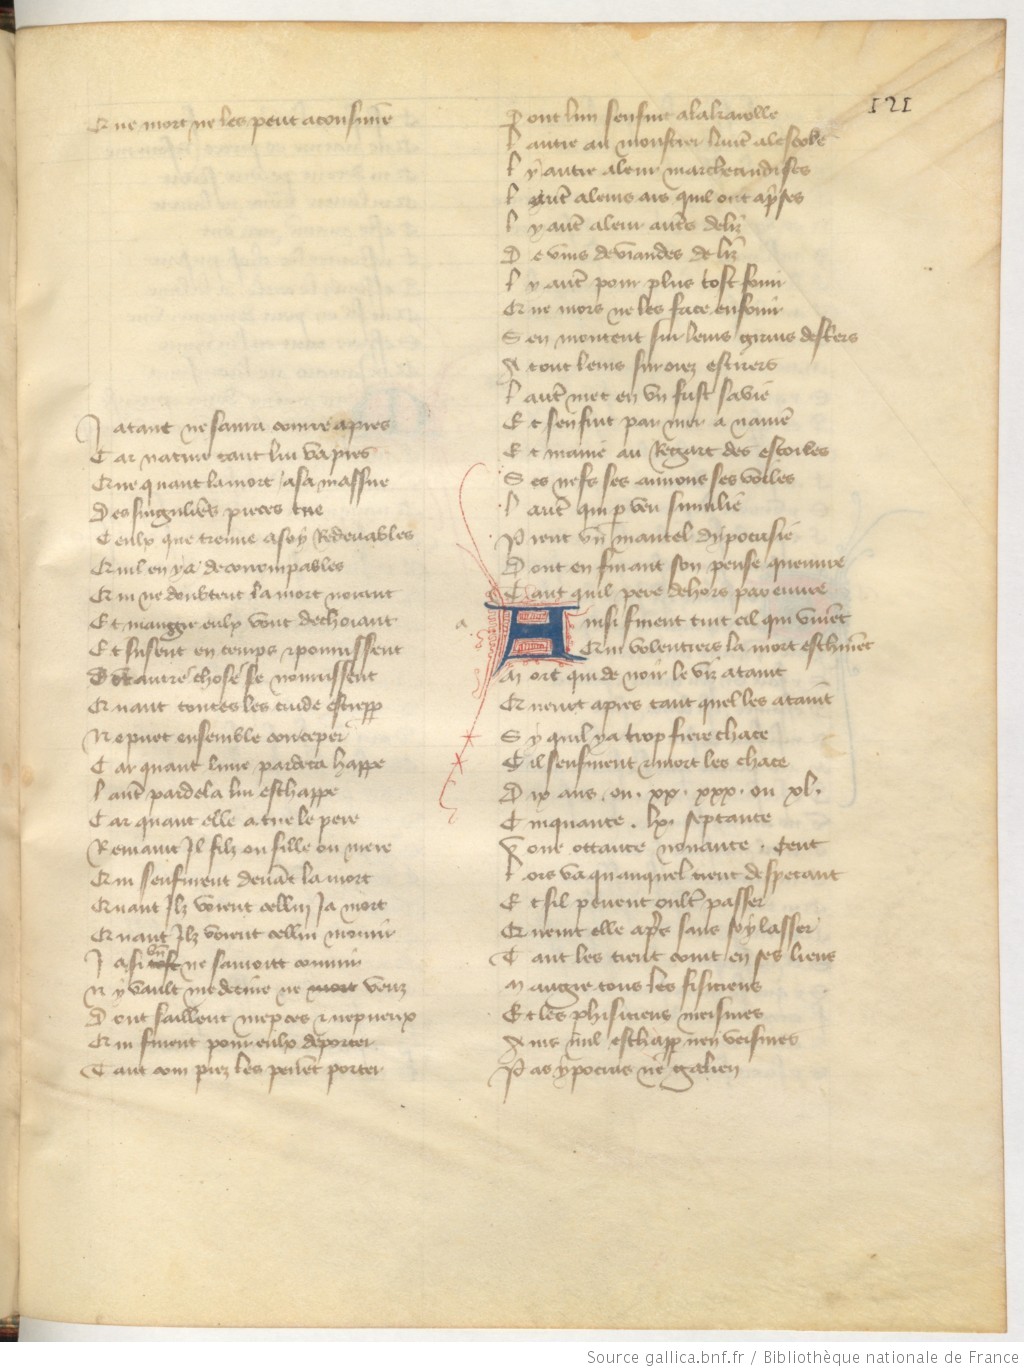 121
Que mort ne les peut aconsuivre
Ja tant ne saura courre apres
Car nature tant lui va pres
Que quant la mort a sa massue
Des singuliers pieces tue
Ceulx que treuve a soy Redevables
Quil en y a de corrompables
Qui ne doubtent la mort noiant
Et maugre eulx vont decheoiant
Et susent en temps et pourrissent
Dont autre chose se nourrissent
Quant toutes les cuide estrepper
Ne puet ensemble conceper
Car quant lune par deca happe
Lautre par dela lui eschappe
Car quant elle a tue le pere
Remaint Il filz ou fille ou mere
Qui senfuient devant la mort
Quant Ilz voient cellui Ja mort
Quant Ilz voient cellui mourir
Ja si bien ne sauront courir
Ny vault medecine ne veuz
Dont saillent nieces et nepveux
Qui fuient pour eulx deporter
Tant com piez les peuent porter
Dont lun senfuit a la karolle
Lautre au monstier lautre a lescole
Ly autre a leur marcheandises
Ly autre a leurs ars quil ont aprises
Ly autre a leur autres deliz
De vins de viandes de liz
Ly autre pour plus tost fouir
Que mors ne les face enfouir
Sen montent sur leurs grans destriers
A tout leurs surorez estriers
Lautre met en un fust sa vie
Et senfuit par mer a navie
Et maine au Regart des estoilles
Ses nefs ses avirons ses voilles
Lautre qui par veu sumilie
Prent un mantel dypocrisie
Dont en fuiant son pense queuvre
Tant quil pere dehors par euvre
Ainsi fuient tuit cil qui vivent
Qui volentiers la mort eschivent
Mort qui de noir le vis a taint
Queurt apres tant quel les ataint
Sy quil y a trop fiere chace
Cil senfuient et mort les chace
Dix ans . ou . xx . xxx . ou xl .
Cinquante . lx . septante
Voire ottante nonante . Cent
Lors va quanquel tient despecant
Et sil peuent oultre passer
Queurt elle apres sans soy lasser
Tant les tient court en ses liens
Maugre tous les fisiciens
Et les phisiciens meismes
Ains nul eschapper nen veismes
Pas ypocras ne galien
Source gallica.bnf.fr / Bibliothèque nationale de France